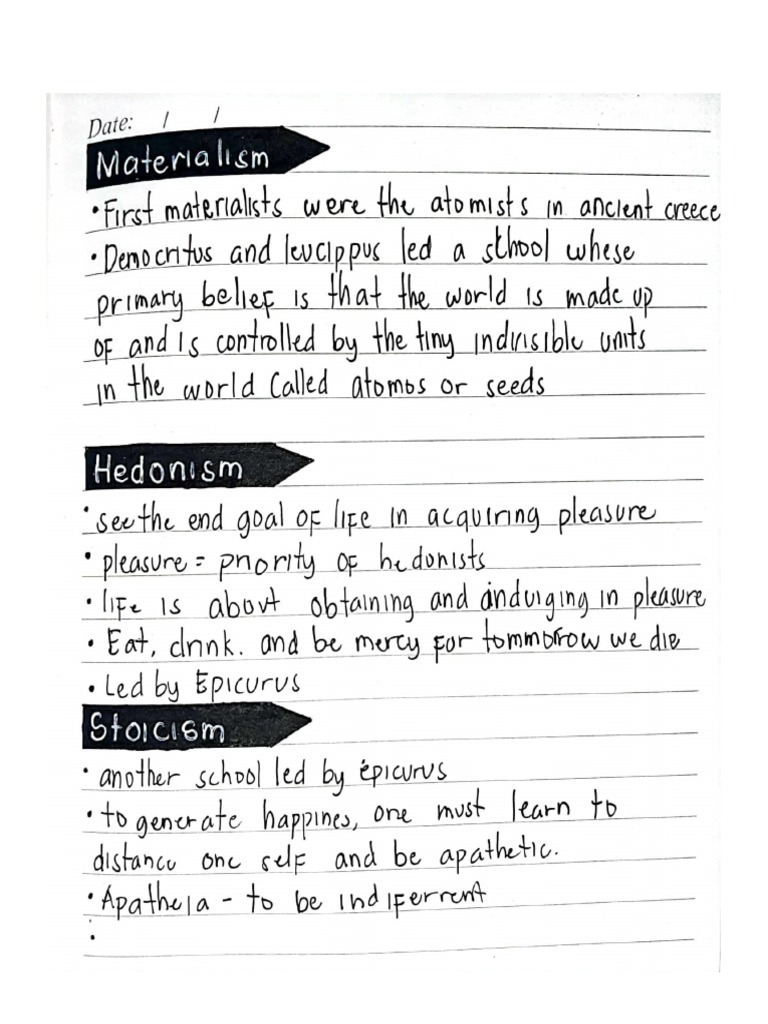 Date: / /
Materialism
• First materialists were the atomists in ancient creece
• Democritus and leucippus led a school whese
primary belief is that the world is made up
of and is controlled by the tiny indivisible units
in the world called atomos or seeds
Hedonism
• see the end goal of life in acquiring pleasure
• pleasure = priority of hedonists
• life is about obtaining and indulging in pleasure
• Eat, drink. and be mercy for tommorow we die
• Led by Epicurus
Stoicism
• another school led by epicurus
• to generate happines, one must learn to
distance one self and be apathetic.
• Apatheia - to be indiferrent
•